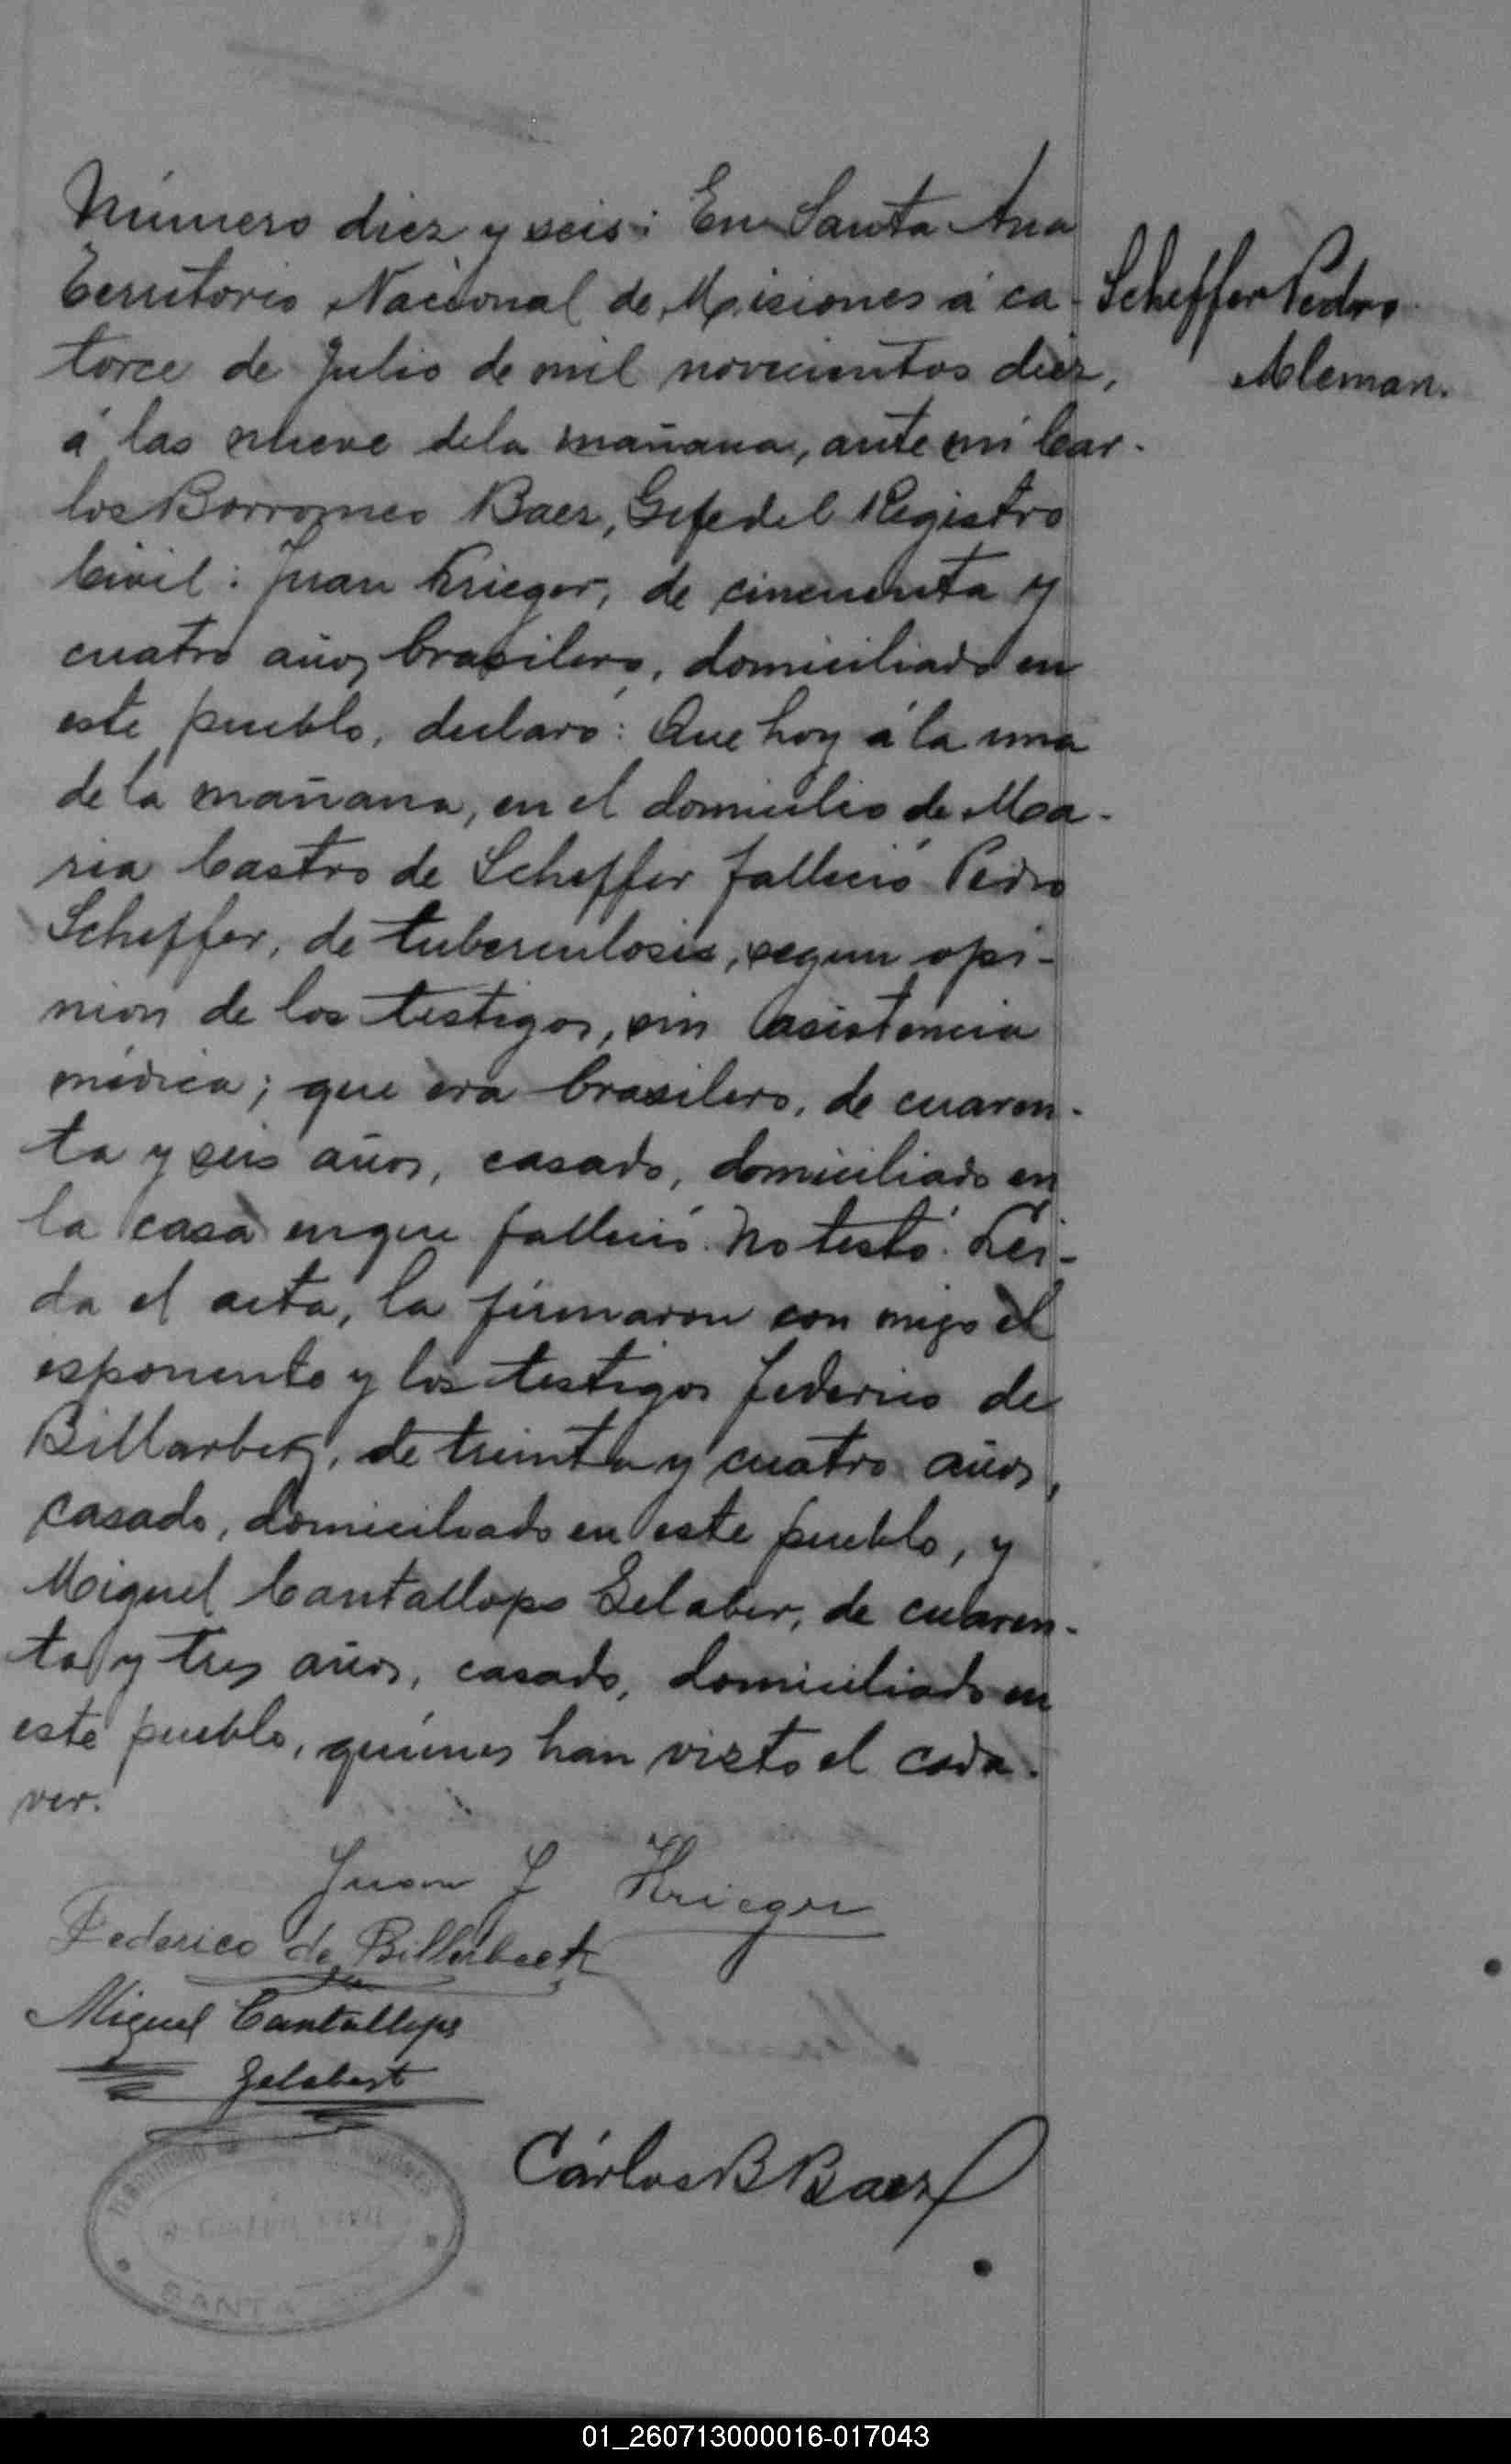 Número diez y seis: En Santa Ana
Territorio Nacional de Misiones á ca-
torce de Julio de mil novecientos diez,
á las nueve dela mañana, ante mi Car-
los Borromeo Baez, Gefe del Registro
Civil: Juan Krieger, de cincuenta y
cuatro años, brasilero, domiciliado en
este pueblo, declaró: Que hoy á la una
de la mañana, en el domicilio de Ma-
ria Castro de Scheffer falleció Pedro
Scheffer, de tuberculosis, segun opi-
nion de los testigos, sin asistencia
médica; que era brasilero, de cuaren-
ta y seis años, casado, domiciliado en
la casa en que falleció. No testó. Lei-
da el acta, la firmaron con migo el
esponente y los testigos Federico de
Billarbek, de treinta y cuatro años,
casado, domiciliado en este pueblo, y
Miguel Cantallops Gelaber, de cuaren-
ta y tres años, casado, domiciliado en
este pueblo, quienes han visto el cada-
ver.
Scheffer Pedro
Aleman.
Juan J Krieger
Federico de Billerbeck
Miguel Cantallops
Gelabert
Cárlos B Baez
TERRITORIO
REGISTRO CIVIL
SANTA
01_260713000016-017043